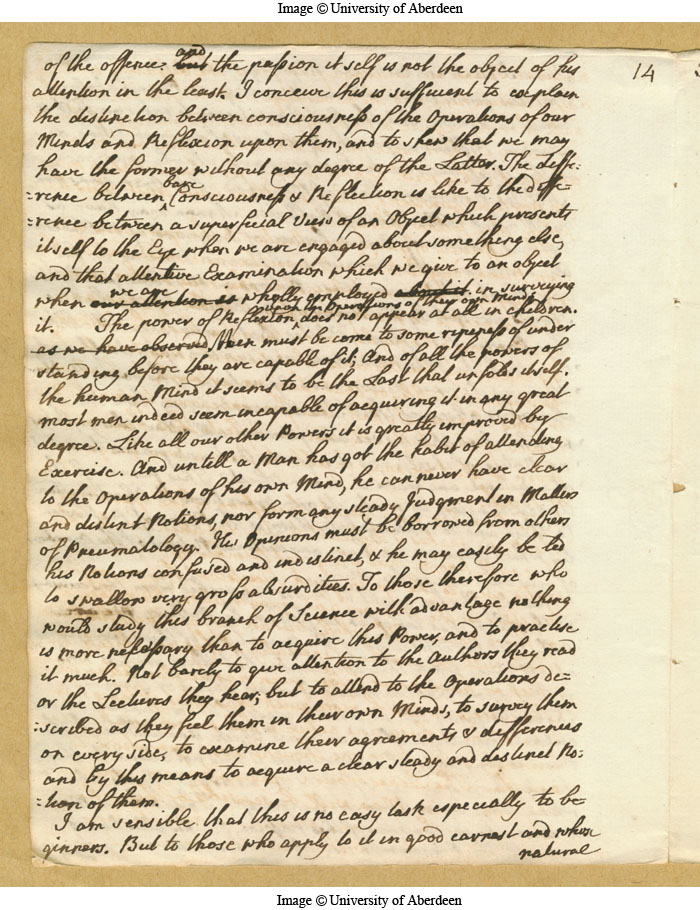 Image © University of Aberdeen
14
of the offence. but and the passion it self is not the object of his
attention in the least. I conceive this is sufficient to explain
the distinction between consciousness of the Operations of our
Minds and Reflexion upon them, and to shew that we may
have the former without any degree of the Latter. The diffe-
=rence between bare Consciousness & Reflection is like to the diffe-
=rence between a superficial View of an Object which presents
itself to the Eye when we are engaged about something else,
and that attentive Examination which we give to an object
when our attention is we are wholly employed about it in surveying
it. The power of Reflexion upon the Operations of their own Minds does not appear at all in children.
as we have observed, Men must be come to some ripeness of under
standing before they are capable of it; And of all the powers of
the human Mind it seems to be the Last that unfolds itself.
most men indeed seem incapable of acquiring it in any great
degree. Like all our other Powers it is greatly improved by
Exercise. And untill a Man has got the habit of attending
to the Operations of his own Mind, he can never have clear
and distinct Notions, nor form any steady Judgment in Matters
of Pneumatology. His Opinions must be borrowed from others
his Notions confused and indistinct, & he may easily be led
to swallow very gross absurdities. To those therefore who
would study this branch of Science with advantage nothing
is more necessary than to acquire this Power, and to practise
it much. Not barely to give attention to the Authors they read
or the Lectures they hear; but to attend to the Operations de=
=scribed as they feel them in their own Minds, to survey them
on every side, to examine their agreements & differences
and by this means to acquire a clear steady and distinct No-
=tion of them.
I am sensible that this is no easy task especially to be
ginners. But to those who apply to it in good earnest and whose
natural
Image © University of Aberdeen